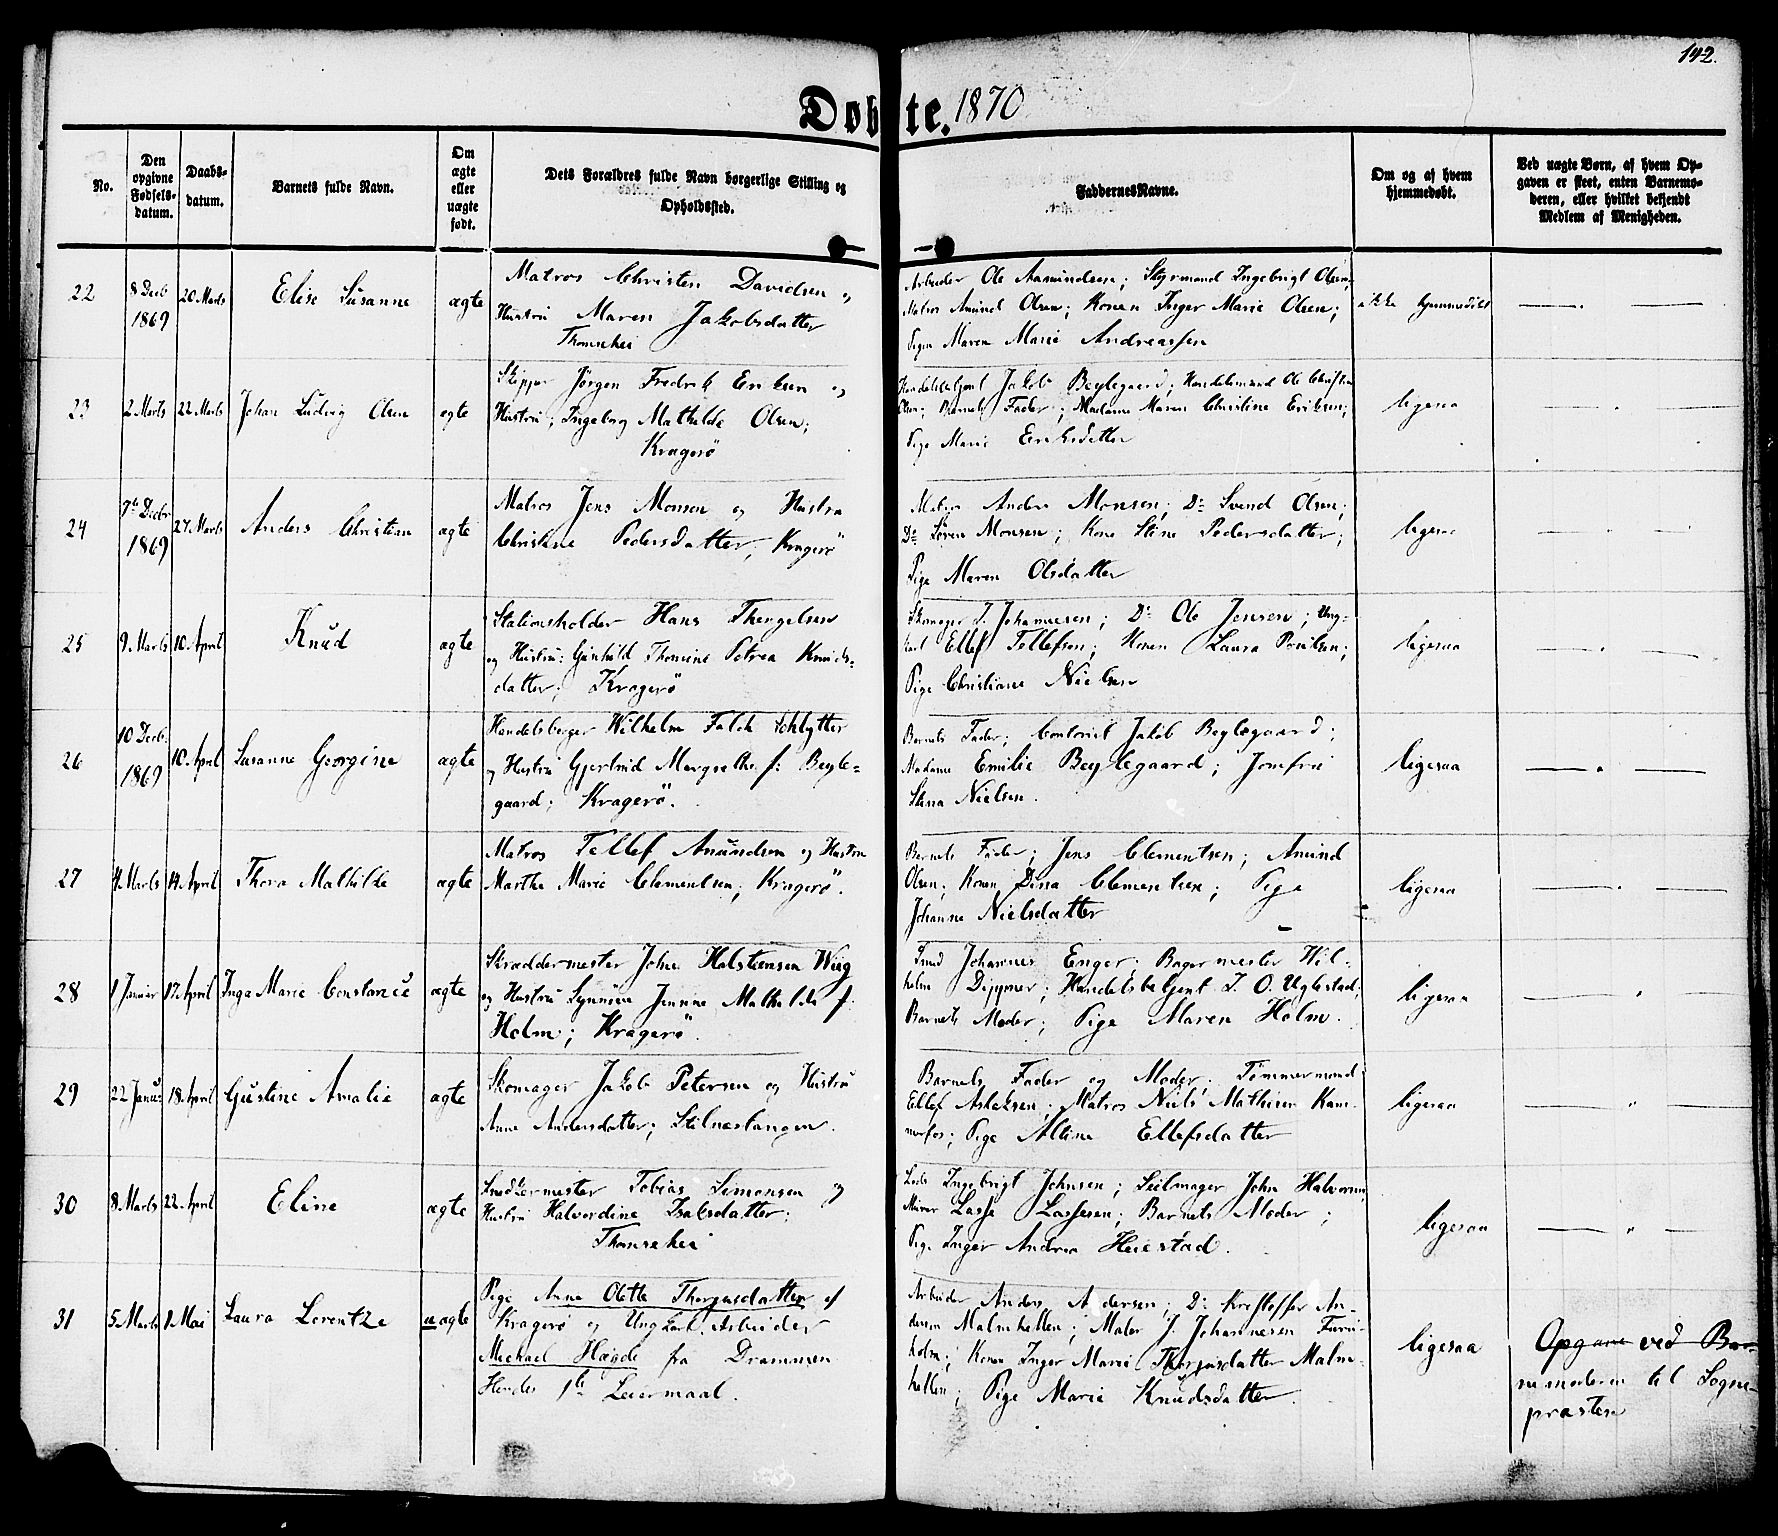 142.
Døbte. 1870
No.
Den opgivne Fødsels-datum.
Daabs-datum.
Barnets fulde Navn.
Om ægte eller uægte født.
Dets Forældres fulde Navn borgerlige Stilling og Opholdssted.
FadderneesNavne.
Om og af hvem hjemmedøbt.
Ved uægte Børn, af hvem Opgaven er skeet, enten Barnemoderen, eller hvilket bekjendt Medlem af Menigheden.
22
8 Decb 1869
20 Marts
Elise Susanne
ægte
Matros Christen Davidsen og
Hustru Maren Jakobsdatter
Thomsehei
Arbeider Ole Aamundsen; Styrmand Ingebrigt Olsen;
Matros Amund Olsen; Konen Inger Marie Olsen;
Pigen Maren Marie Andreassen
ikke hjemmedøbt
23
2 Marts
22 Marts
Johan Ludvig Olsen
ægte
Skipper Jørgen Fredrik Eriksen og
Hustru; Ingeborg Mathilde Olsen;
Kragerø
Handelsbetjent Jakob Beylegaard; Handelsmand Ole Christian
Olsen; Barnets Fader; Madame Maren Christine Eriksen;
Pige Marie Eriksdatter
ligesaa
24
7de Decbr 1869
27 Marts
Anders Christian
ægte
Matros Jens Monsen og Hustru
Christine Pedersdatter; Kragerø
Matros Anders Monsen; Do Svend Olsen;
Do Søren Monsen; Kone Stine Pedersdatter;
Pige Maren Olsdatter
ligesaa
25
9 Marts
10 April
Knud
ægte
Stationsholder Hans Thengelsen
og Hustru: Gunhild Thomine Petrea Knuds-
datter; Kragerø
Skomager J. Johannesen; Do Ole Jensen; Ung-
karl Ellef Tellefsen; Konen Laura Poulsen;
Pige Christiane Nielsen
ligesaa
26
10 Decb. 1869
10 April
Susanne Georgine
ægte
Handelsborger Wilhelm Falck Schlytter
og Hustru Gjertrud Margrethe f: Beyle-
gaard; Kragerø.
Barnets Fader; Contorist Jakob Beylegaard;
Madame Emilie Beylegaard; Jomfru
Stina Nielsen.
ligesaa
27
4 Marts
14 April
Thora Mathilde
ægte
Matros Tellef Anundsen og Hustru
Marthe Marie Clementsen; Kragerø.
Barnets Fader; Jens Clementsen; Amund
Olsen; Konen Dina Clementsen; Pige
Johanne Nielsdatter
ligesaa
28
1 Januar
17 April
Inga Marie Constance
ægte
Skræddermester John Halstensen Wiig
og Hustru Synnøve Jennine Mathilde f.
Holm; Kragerø.
Smed Johannes Enger; Bagermester Wil-
helm Dippner; Handelsbetjent T. O. Uglestad;
Barnets Moder; Pige Maren Holm.
ligesaa
29
22 Januar
18 April
Gustine Amalie
ægte
Skomager Jakob Petersen og Hustru
Anne Andersdatter; Stilnestangen.
Barnets Fader og Moder; Tømmermand
Ellef Aslaksen; Matros Niels Mathisen Kam-
merfos; Pige Altine Ellefsdatter
ligesaa
30
8 Marts
22 April
Eline
ægte
Snedkermester Tobias Simonsen og
Hustru Halvordine Isaksdatter;
Thomsehei
Lods Ingebrigt Johnsen; Seilmager John Halvorsen;
Murer Lasse Lassesen; Barnets Moder;
Pige Inger Andrea Heiestad.
ligesaa
31
5 Marts
1 Mai
Laura Lorentze
uægte
Pige Anne Olette Thorgersdatter af
Kragerø og Ungkarl, Arbeider
Michael Hægde fra Drammen
Hendes 1ste Leiermaal.
Arbeider Anders Andersen; Do Kristoffer An-
dersen Malmhellen; Maler J. Johannesen Furu-
holm; Konen Inger Marie Thorgersdatter Malm-
hellen; Pige Marie Knudsdatter.
ligesaa
Opgave ved Bar-
nemoderen til Sogne-
præsten